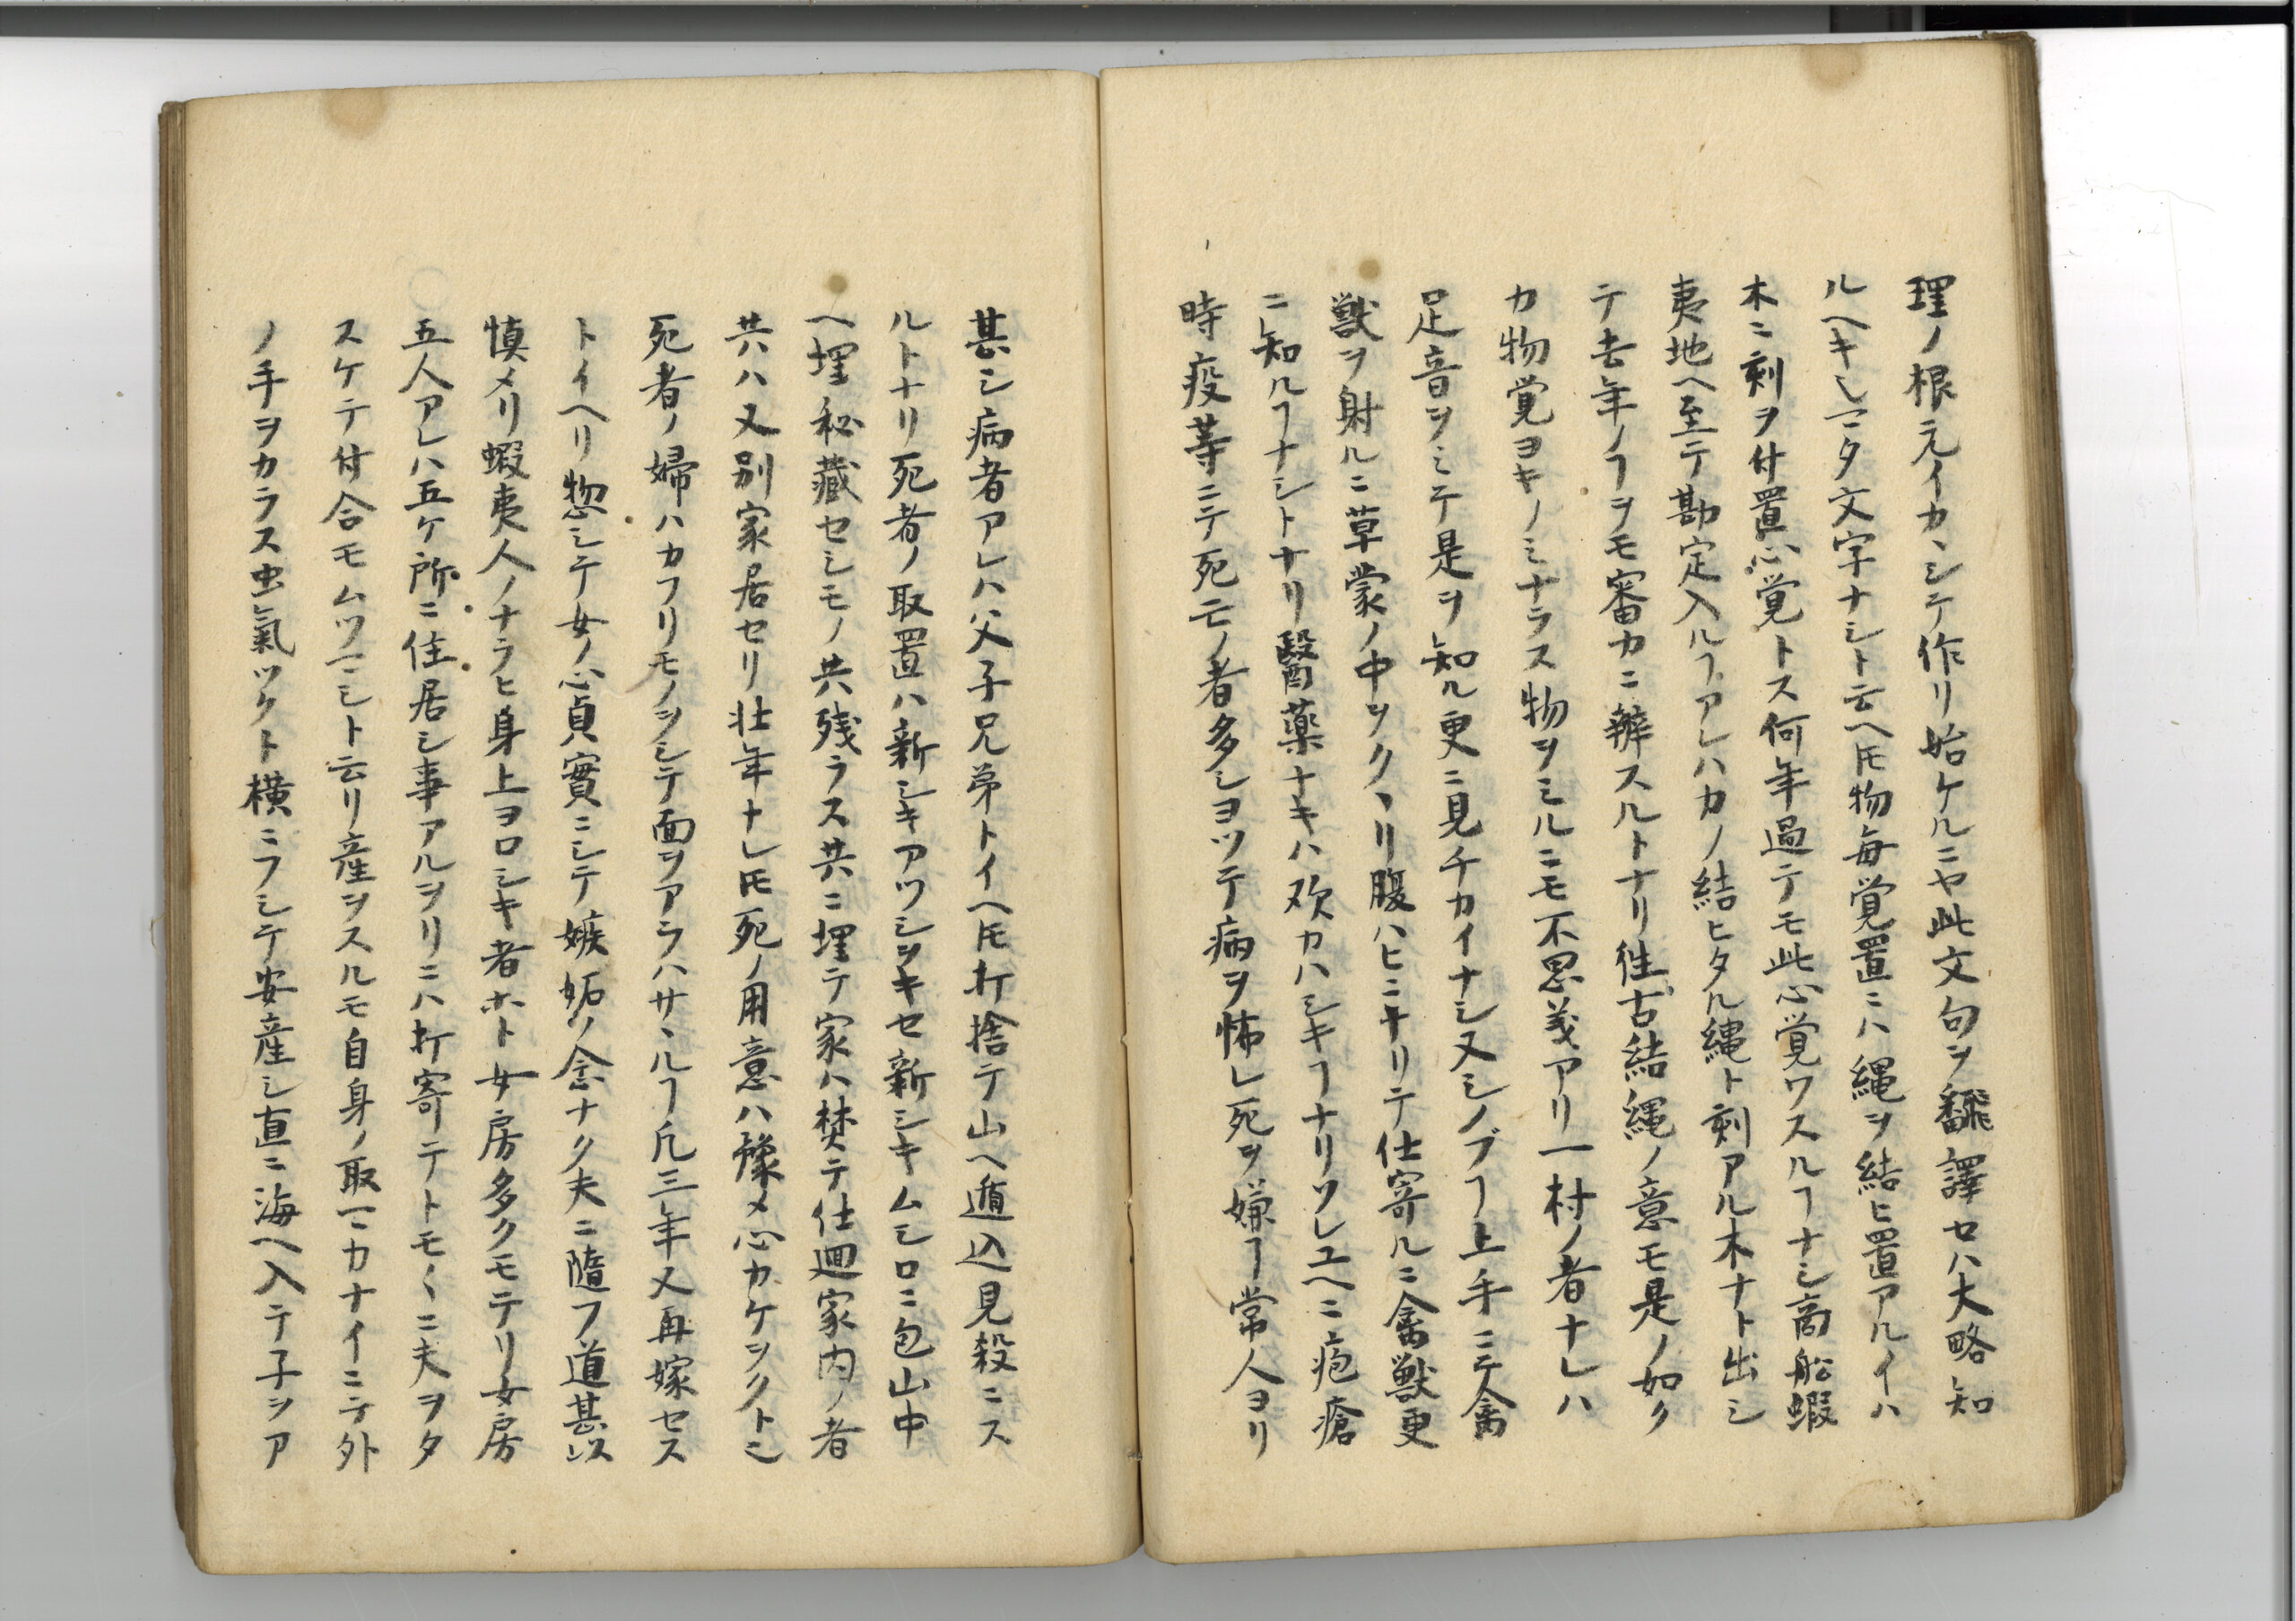 理ノ根元イカヽシテ作リ始ケルニヤ此文句ヲ飜譯セハ大略知
ルヘキシマタ文字ナシト云ヘ𪜈物毎覚置ニハ縄ヲ結ヒ置アルイハ
木ニ刻ヲ付置心覚トス何年過テモ此心覚ワスルヿナシ商舩蝦
夷地ヘ至テ勘定入ルヿアレハカノ結ヒタル縄ト刻アル木ナト出シ
テ去年ノヿヲモ審カニ辨スルトナリ徃古結縄ノ意モ是ノ如ク
カ物覚ヨキノミナラス物ヲミルニモ不思義アリ一村ノ者ナレハ
足音ヲシテ是ヲ知ル更ニ見チカイナシ又シノブヿ上手ニテ禽
獣ヲ射ルニ草蒙ノ中ヲクヽリ腹ハヒニキリテ仕寄ルニ禽獣更
ニ知ルヿナシトナリ醫薬ナキハ欢カハシキヿナリソレユヘニ疱瘡
時疫等ニテ死亡ノ者多シヨツテ病ヲ怖レ死ヲ嫌ヿ常人ヨリ
甚シ病者アレハ父子兄弟トイヘ𪜈打捨テ山ヘ遁込見殺ニス
ルトナリ死者ノ取置ハ新シキアツシヲキセ新シキムシロニ包山中
ヘ埋秘藏セシモノ共残ラス共ニ埋テ家ハ焚テ仕廻家内ノ者
共ハ又別家居セリ壮年ナレ𪜈死ノ用意ハ豫メ心カケヲクトシ
死者ノ婦ハカフリモノヲシテ面ヲアラハサヽルヿ凡三年又再嫁セス
トイヘリ惣シテ女ノ心貞實ニシテ嫉妬ノ念ナク夫ニ隨フ道甚以
慎メリ蝦夷人ノナラヒ身上ヨロシキ者ホト女房多クモテリ女房
五人アレハ五ケ所ニ住居シ事アルヲリニハ打寄テトモ〱ニ夫ヲタ
スケテ付合モムツマシト云リ産ヲスルモ自身ノ取マカナイニテ外
ノ手ヲカラス虫氣ツクト横ニフシテ安産シ直ニ海ヘ入テ子ヲア